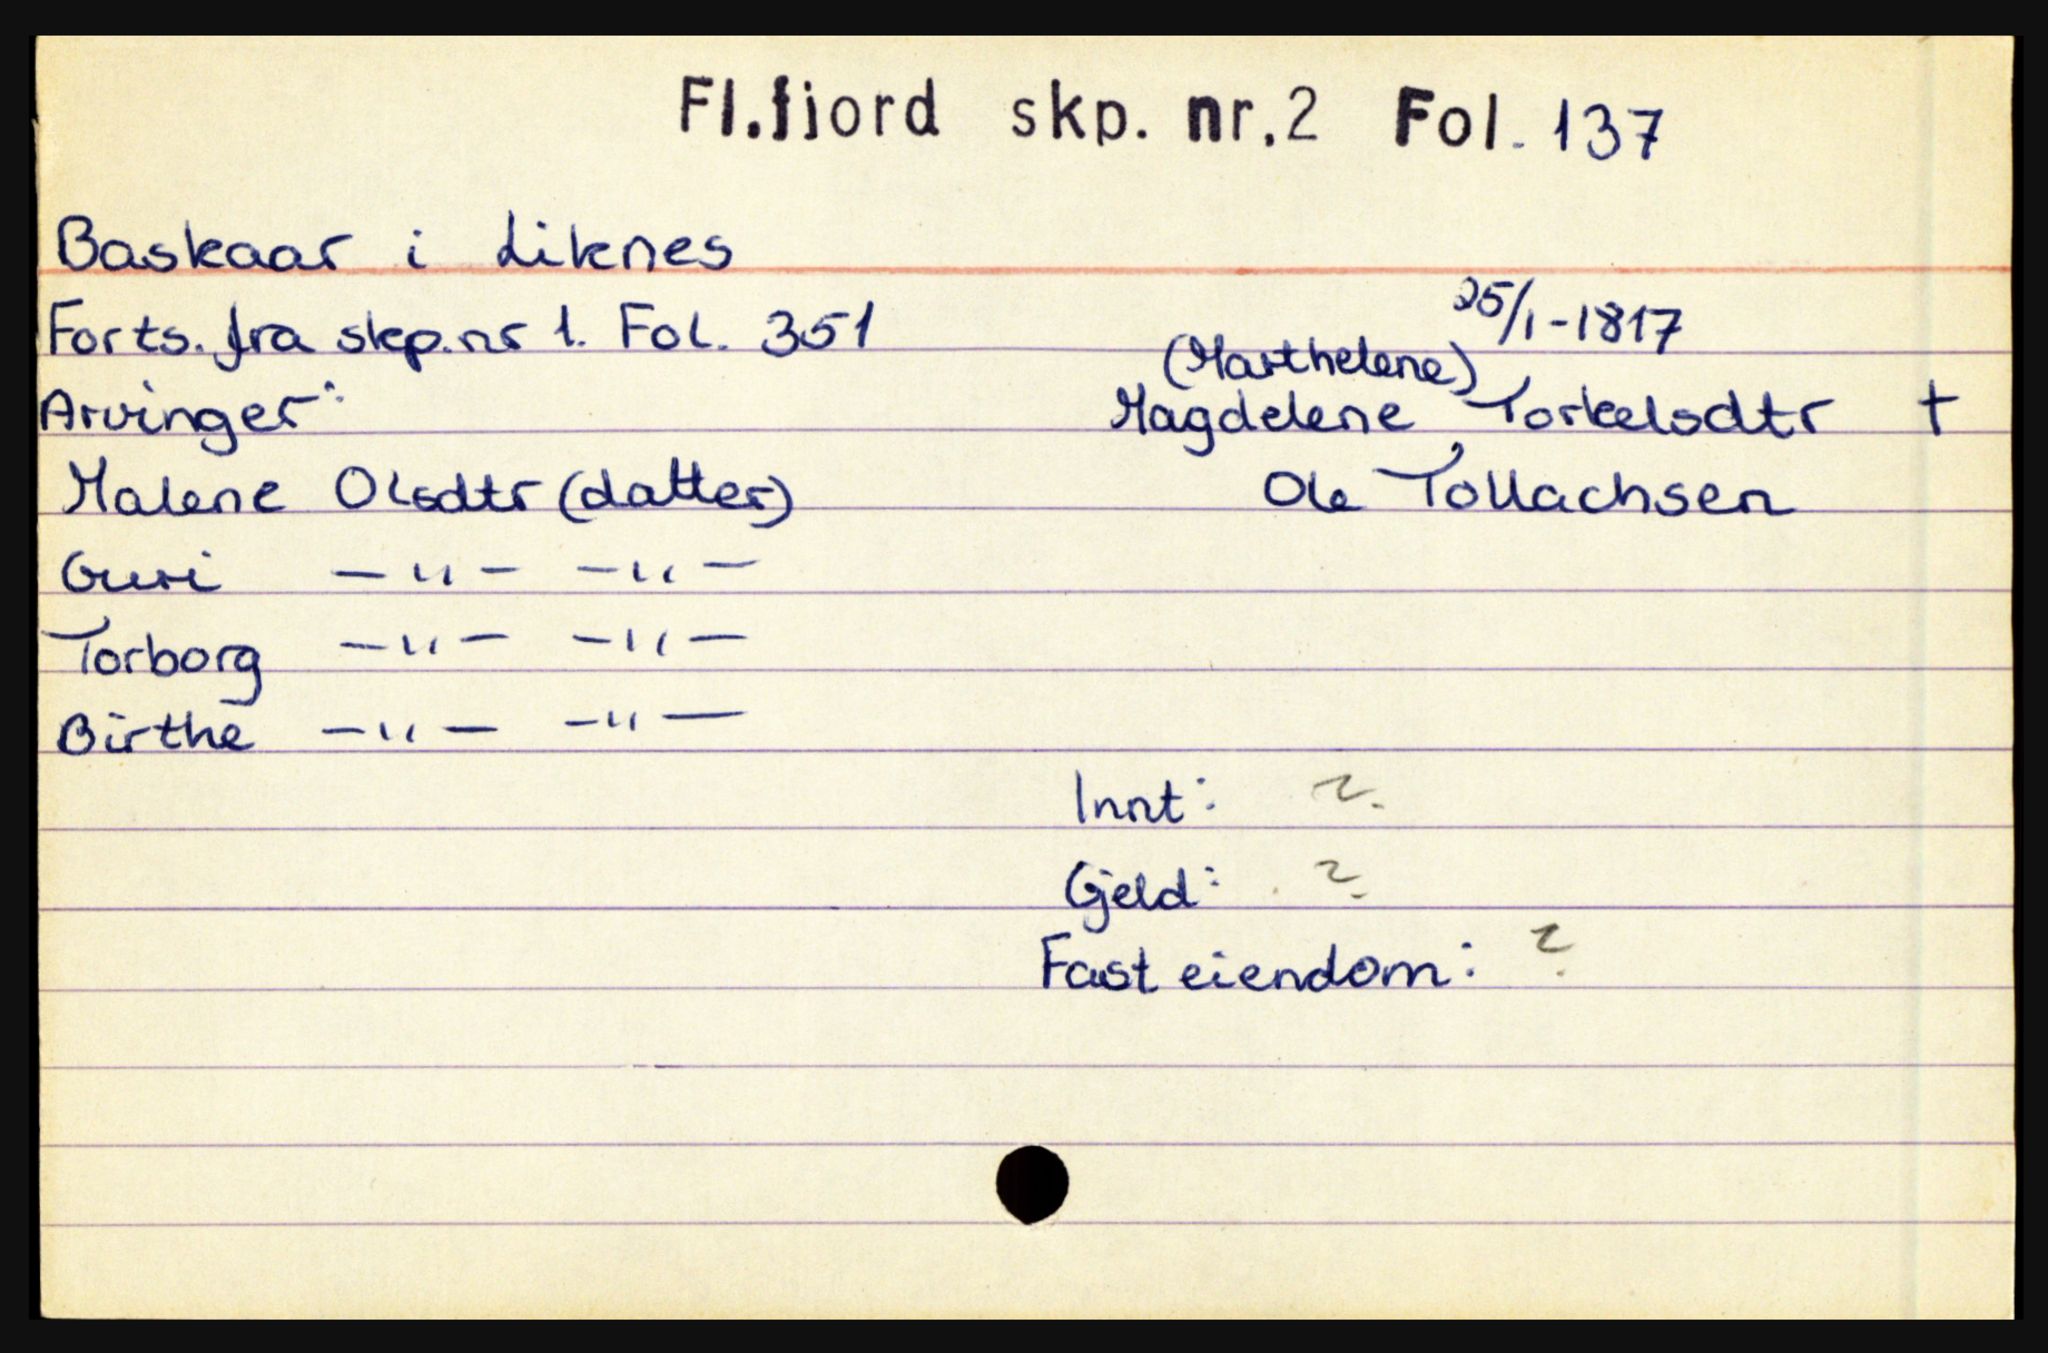 Fl.fjord skp. nr.2 Fol. 137
Baskaar i Liknes
25/1-1817
Forts. fra skp.nr 1. Fol. 351
(Marthelene)
Arvinger:
Magdelene Torkelsdtr †
Malene Olsdtr (datter)
Ole Tollachsen
Guri —"— —"—
Torborg —"— —"—
Birthe —"— —"—
Innt: ?
Gjeld: ?
Fast eiendom: ?